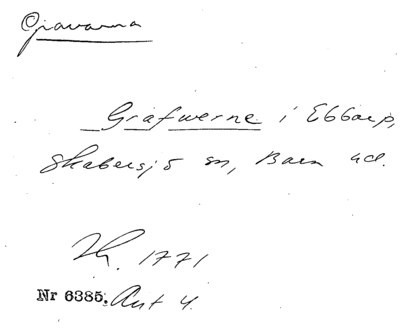 Gravarna
Grafwerne i Ebbarp,
Skabersjö sn, Bara hd.
Th. 1771
Nr 6385. Akt 4.